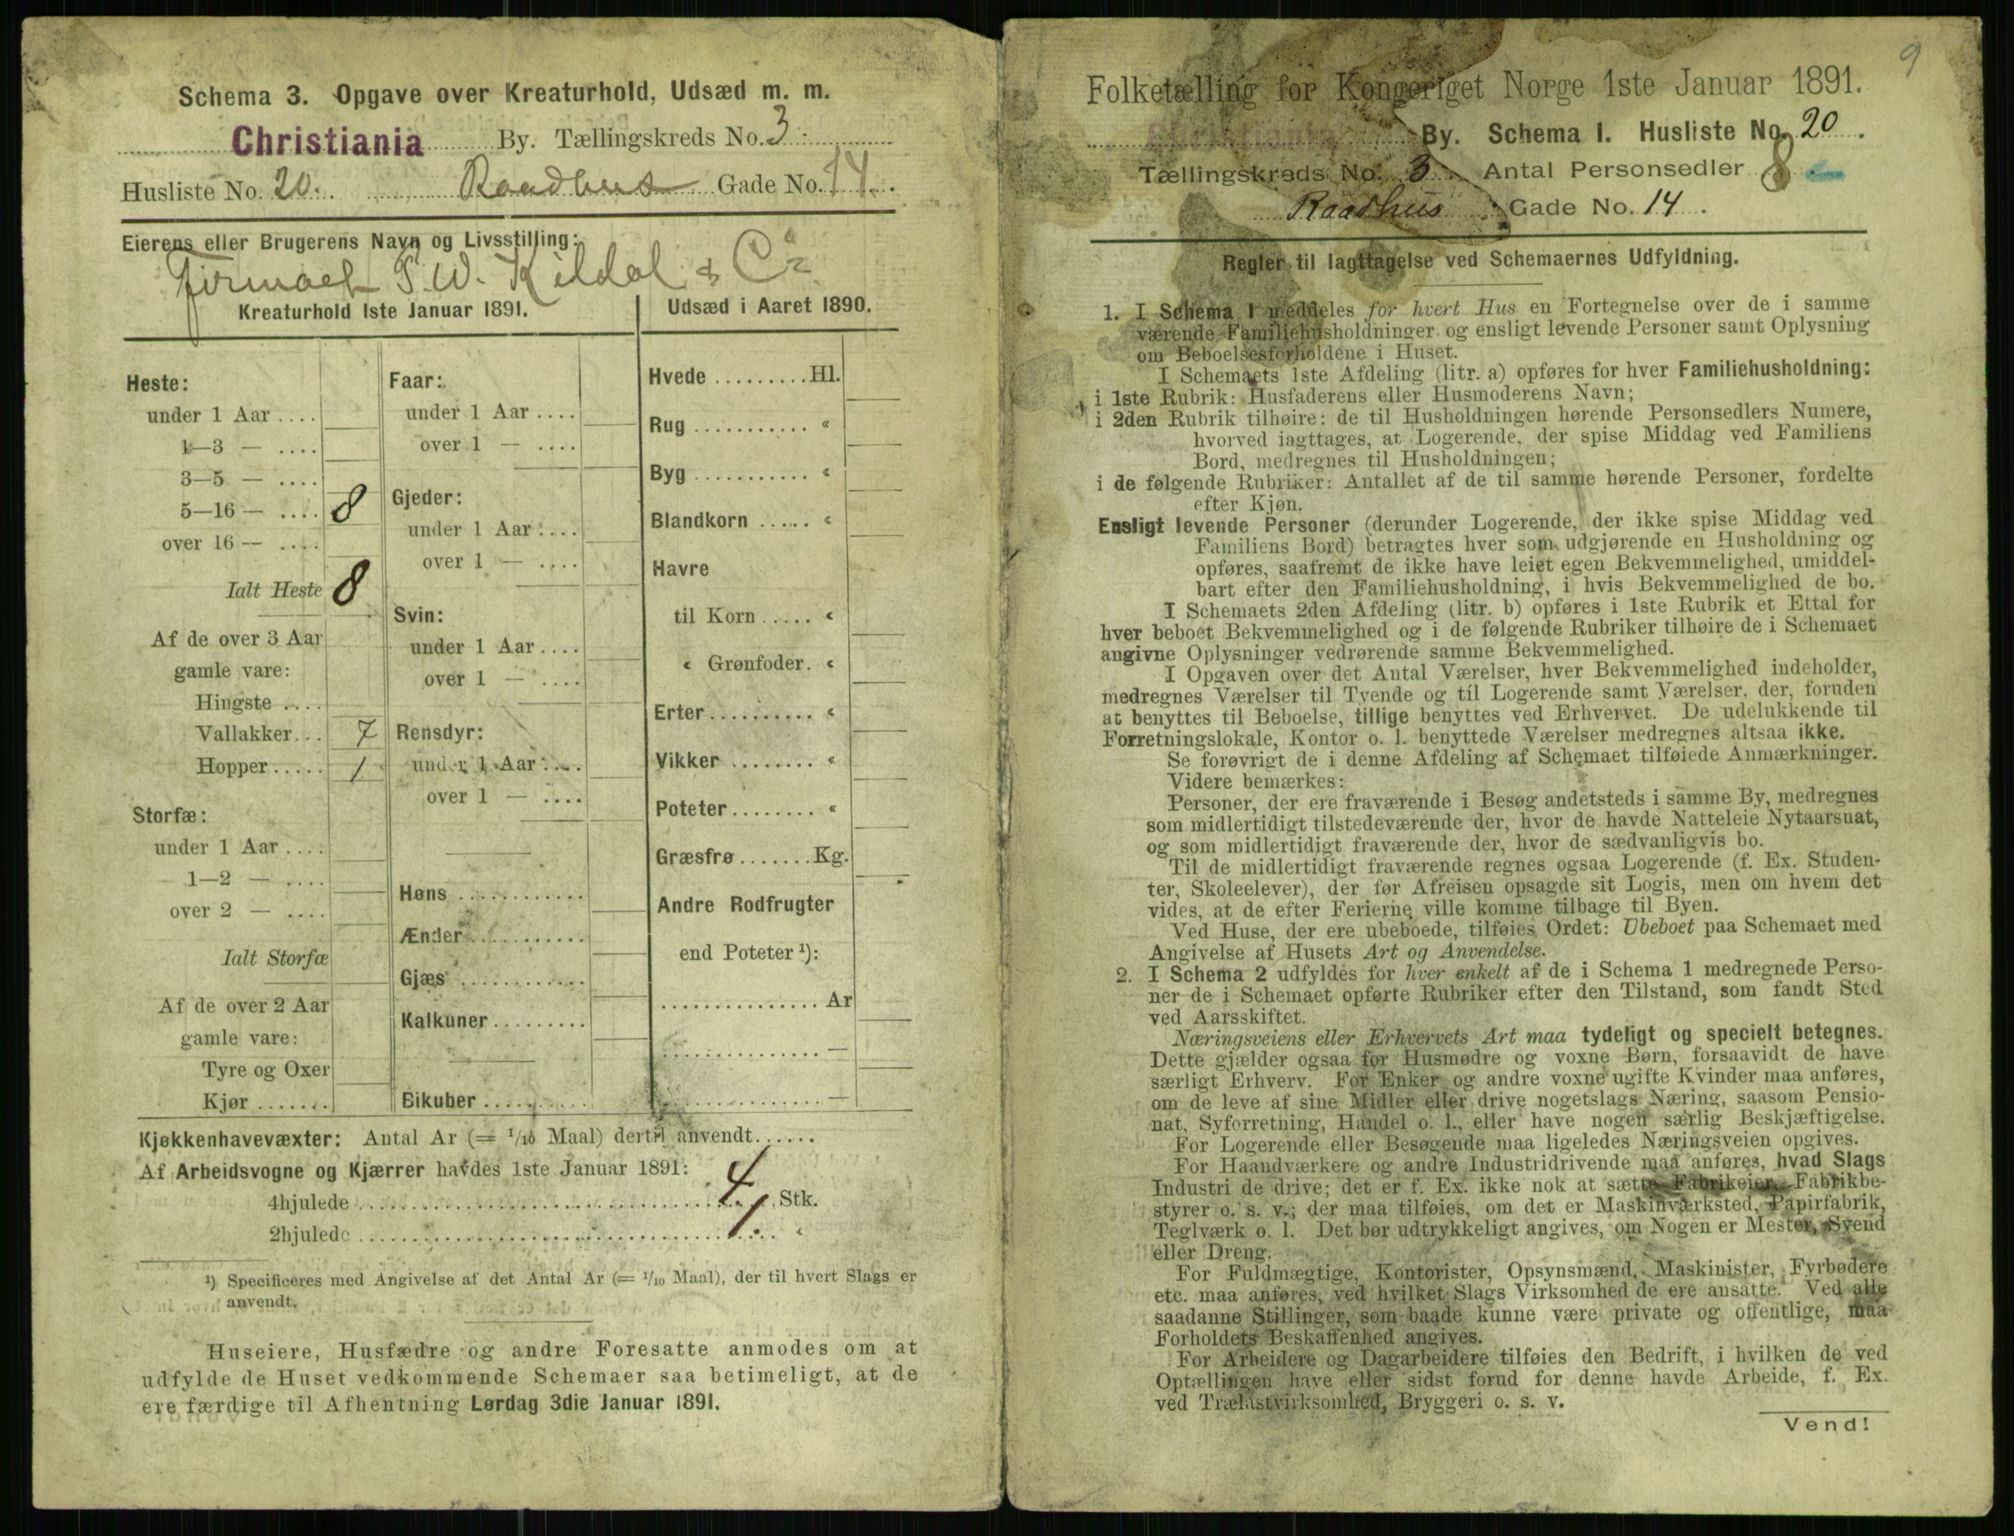 Schema 3. Opgave over Kreaturhold, Udsæd m. m.
Christiania By. Tællingskreds No. 3
Husliste No. 20. Raadhus Gade No. 14.
Eierens eller Brugerens Navn og Livsstilling:
Firmaet P. W. Kildal & Co
Kreaturhold 1ste Januar 1891.
Heste:
under 1 Aar ....
1—3 — ....
3—5 — ....
5—16 — .... 8
over 16 — ....
Ialt Heste 8
Af de over 3 Aar
gamle vare:
Hingste ....
Vallakker... 7
Hopper..... 1
Storfæ:
under 1 Aar ....
1—2 — ....
over 2 — ....
Ialt Storfæ
Af de over 2 Aar
gamle vare:
Tyre og Oxer
Kjør .......
Faar:
under 1 Aar ....
over 1 — ....
Gjeder:
under 1 Aar ....
over 1 — ....
Svin:
under 1 Aar ....
over 1 — ....
Rensdyr:
under 1 Aar ....
over 1 — ....
Høns ............
Ænder ...........
Gjæs ............
Kalkuner.........
Bikuber .........
Udsæd i Aaret 1890.
Hvede .........Hl.
Rug ........... «
Byg ........... «
Blandkorn ...... «
Havre
til Korn ..... «
« Grønfoder. «
Erter.......... «
Vikker ........ «
Poteter........ «
Græsfrø .......Kg.
Andre Rodfrugter
end Poteter ¹):
............... Ar
............... —
............... —
Kjøkkenhavevæxter: Antal Ar (= 1/10 Maal) dertil anvendt......
Af Arbeidsvogne og Kjærrer havdes 1ste Januar 1891:
4hjulede ........ 4 Stk.
2hjulede ........ 1. «
¹) Specificeres med Angivelse af det Antal Ar (= 1/10 Maal), der til hvert Slags er
anvendt.
Huseiere, Husfædre og andre Foresatte anmodes om at
udfylde de Huset vedkommende Schemaer saa betimeligt, at de
ere færdige til Afhentning Lørdag 3die Januar 1891.
9
Folketælling for Kongeriget Norge 1ste Januar 1891.
Christiania By. Schema I. Husliste No. 20.
Tællingskreds No. 3. Antal Personsedler 8
Raadhus Gade No. 14.
Regler til Iagttagelse ved Schemaernes Udfyldning.
1. I Schema 1 meddeles for hvert Hus en Fortegnelse over de i samme
værende Familiehusholdninger og ensligt levende Personer samt Oplysning
om Beboelsesforholdene i Huset.
I Schemaets 1ste Afdeling (litr. a) opføres for hver Familiehusholdning:
i 1ste Rubrik: Husfaderens eller Husmoderens Navn;
i 2den Rubrik tilhøire: de til Husholdningen hørende Personsedlers Numere,
hvorved iagttages, at Logerende, der spise Middag ved Familiens
Bord, medregnes til Husholdningen;
i de følgende Rubriker: Antallet af de til samme hørende Personer, fordelte
efter Kjøn.
Ensligt levende Personer (derunder Logerende, der ikke spise Middag ved
Familiens Bord) betragtes hver som udgjørende en Husholdning og
opføres, saafremt de ikke have leiet egen Bekvemmelighed, umiddel-
bart efter den Familiehusholdning, i hvis Bekvemmelighed de bo.
I Schemaets 2den Afdeling (litr. b) opføres i 1ste Rubrik et Ettal for
hver beboet Bekvemmelighed og i de følgende Rubriker tilhøire de i Schemaet
angivne Oplysninger vedrørende samme Bekvemmelighed.
I Opgaven over det Antal Værelser, hver Bekvemmelighed indeholder,
medregnes Værelser til Tyende og til Logerende samt Værelser, der, foruden
at benyttes til Beboelse, tillige benyttes ved Erhvervet. De udelukkende til
Forretningslokale, Kontor o. l. benyttede Værelser medregnes altsaa ikke.
Se forøvrigt de i denne Afdeling af Schemaet tilføiede Anmærkninger.
Videre bemærkes:
Personer, der ere fraværende i Besøg andetsteds i samme By, medregnes
som midlertidigt tilstedeværende der, hvor de havde Natteleie Nytaarsnat,
og som midlertidigt fraværende der, hvor de sædvanligvis bo.
Til de midlertidigt fraværende regnes ogsaa Logerende (f. Ex. Studen-
ter, Skoleelever), der før Afreisen opsagde sit Logis, men om hvem det
vides, at de efter Ferierne ville komme tilbage til Byen.
Ved Huse, der ere ubeboede, tilføies Ordet: Ubeboet paa Schemaet med
Angivelse af Husets Art og Anvendelse.
2. I Schema 2 udfyldes for hver enkelt af de i Schema 1 medregnede Perso-
ner de i Schemaet opførte Rubriker efter den Tilstand, som fandt Sted
ved Aarsskiftet.
Næringsveiens eller Erhvervets Art maa tydeligt og specielt betegnes.
Dette gjælder ogsaa for Husmødre og voxne Børn, forsaavidt de have
særligt Erhverv. For Enker og andre voxne ugifte Kvinder maa anføres,
om de leve af sine Midler eller drive nogetslags Næring, saasom Pensio-
nat, Syforretning, Handel o. l., eller have nogen særlig Beskjæftigelse.
For Logerende eller Besøgende maa ligeledes Næringsveien opgives.
For Haandværkere og andre Industridrivende maa anføres, hvad Slags
Industri de drive; det er f. Ex. ikke nok at sætte Fabrikeier, Fabrikbe-
styrer o. s. v.; der maa tilføies, om det er Maskinværksted, Papirfabrik,
Teglværk o. l. Det bør udtrykkeligt angives, om Nogen er Mester, Svend
eller Dreng.
For Fuldmægtige, Kontorister, Opsynsmænd, Maskinister, Fyrbødere
etc. maa anføres, ved hvilket Slags Virksomhed de ere ansatte. Ved alle
saadanne Stillinger, som baade kunne være private og offentlige, maa
Forholdets Beskaffenhed angives.
For Arbeidere og Dagarbeidere tilføies den Bedrift, i hvilken de ved
Optællingen have eller sidst forud for denne havde Arbeide, f. Ex.
ved Trælastvirksomhed, Bryggeri o. s. v.
Vend!